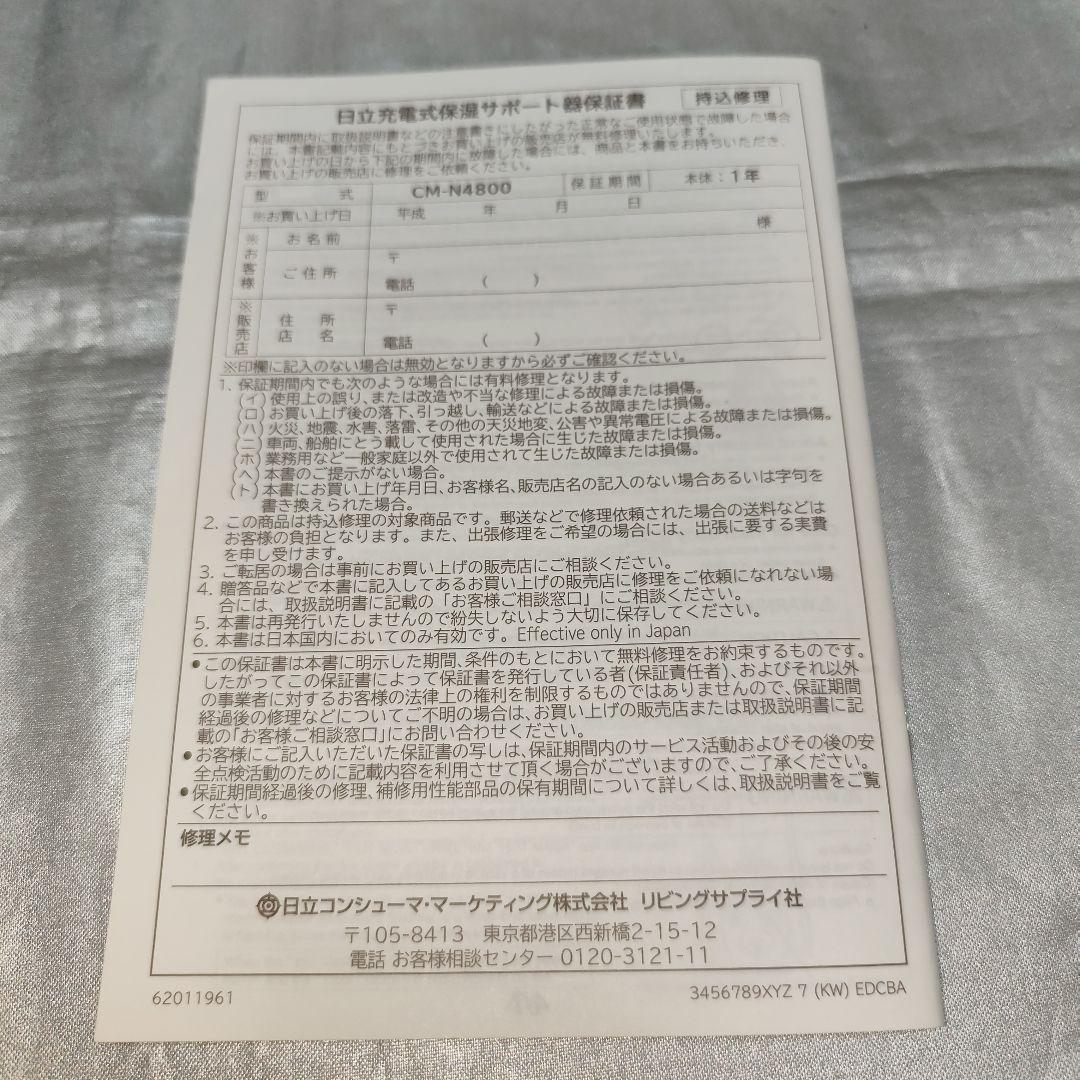 日立充電式保湿サポート器保証書 持込修理
保証期間内に取扱説明書などの注意書きにしたがった正常なご使用状態で故障した場合
には、本書記載内容にもとづきお買い上げの販売店が無料修理いたします。
お買い上げの日から下記の期間内に故障した場合には、商品と本書をお持ちいただき、
お買い上げの販売店に修理をご依頼ください。
型 式 CM-N4800 保証期間 本体：1年
※お買い上げ日 平成 年 月 日
※お客様 お名前 様
ご住所 〒
電話 ( )
※販売店 住所 〒
店名 電話 ( )
※印欄に記入のない場合は無効となりますから必ずご確認ください。
1. 保証期間内でも次のような場合には有料修理となります。
(イ) 使用上の誤り、または改造や不当な修理による故障または損傷。
(ロ) お買い上げ後の落下、引っ越し、輸送などによる故障または損傷。
(ハ) 火災、地震、水害、落雷、その他の天災地変、公害や異常電圧による故障または損傷。
(ニ) 車両、船舶にとう載して使用された場合に生じた故障または損傷。
(ホ) 業務用など一般家庭以外で使用されて生じた故障または損傷。
(ヘ) 本書のご提示がない場合。
(ト) 本書にお買い上げ年月日、お客様名、販売店名の記入のない場合あるいは字句を
書き換えられた場合。
2. この商品は持込修理の対象商品です。郵送などで修理依頼された場合の送料などは
お客様の負担となります。また、出張修理をご希望の場合には、出張に要する実費
を申し受けます。
3. ご転居の場合は事前にお買い上げの販売店にご相談ください。
4. 贈答品などで本書に記入してあるお買い上げの販売店に修理をご依頼になれない場
合には、取扱説明書に記載の「お客様ご相談窓口」にご相談ください。
5. 本書は再発行いたしませんので紛失しないよう大切に保存してください。
6. 本書は日本国内においてのみ有効です。Effective only in Japan
●この保証書は本書に明示した期間、条件のもとにおいて無料修理をお約束するものです。
したがってこの保証書によって保証書を発行している者(保証責任者)、およびそれ以外
の事業者に対するお客様の法律上の権利を制限するものではありませんので、保証期間
経過後の修理などについてご不明の場合は、お買い上げの販売店または取扱説明書に記
載の「お客様ご相談窓口」にお問い合わせください。
●お客様にご記入いただいた保証書の写しは、保証期間内のサービス活動およびその後の安
全点検活動のために記載内容を利用させて頂く場合がございますので、ご了承ください。
●保証期間経過後の修理、補修用性能部品の保有期間について詳しくは、取扱説明書をご覧
ください。
修理メモ
日立コンシューマ・マーケティング株式会社 リビングサプライ社
〒105-8413 東京都港区西新橋2-15-12
電話 お客様相談センター 0120-3121-11
62011961 3456789XYZ 7 (KW) EDCBA